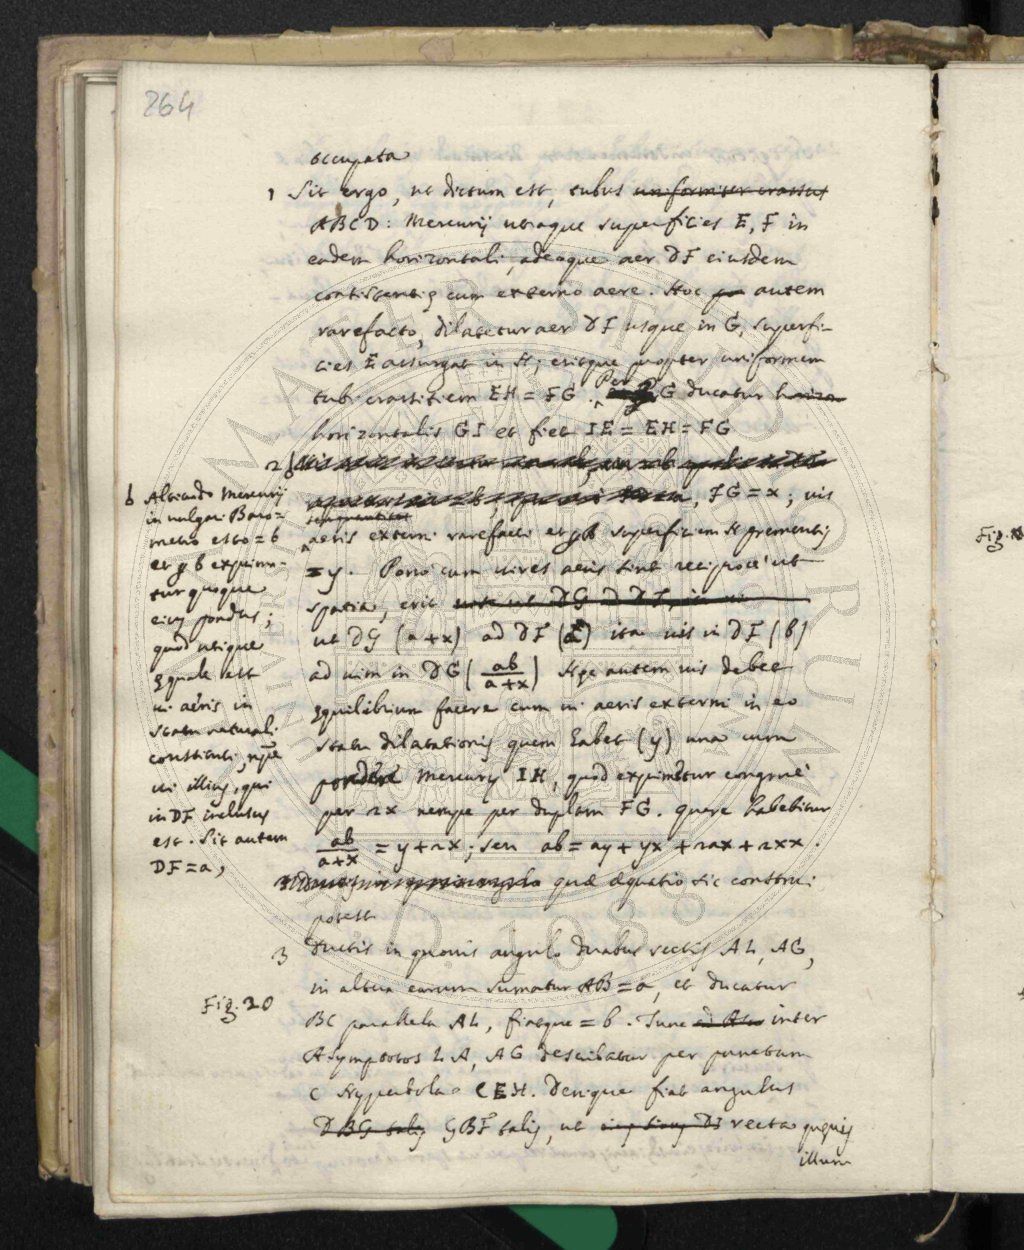 264
occupata
1 Sit ergo, ut dictum est, tubus uniformiter crassus
ABCD: Mercurij utraque superficies E, F in
eadem horizontali, adeoque aer DF eiusdem
consistentię cum externo aere. Hoc autem
rarefacto, dilatetur aer DF usque in G, superfi-
cies E assurgat in H; eritque propter uniformem
tubi crassitiem EH = FG. Per G ducatur horizon
horizontalis GI et fiet IE = EH = FG
2
, FG = x; vis
aeris externi rarefacti et qui superficiem H prementis
= y. Porro cum vires aeris sint reciproce ut
spatia, erit
ut DG (a+x) ad DF (a) ita vis in DF (b)
ad vim in DG (ab/a+x) Hęc autem vis debet
ęquilibrium facere cum vi aeris externi in eo
statu dilatationis quem habet (y) una cum
pondere Mercurij IH, quod exprimetur congruè
per 2x nempe per duplam FG. quare habebitur
ab/a+x = y+2x; seu ab = ay + yx + 2ax + 2xx.
quæ æquatio sic construi
potest
3 Ductis in quovis angulo duabus rectis AL, AG,
in altera earum sumatur AB = a, et ducatur
BC parallela AL, fiatque = b. Tunc inter
Asymptotos LA, AG describatur per punctum
C Hyperbola CEH. Denique fiat angulus
DBG talis GBF talis, ut recta
illum
b Altitudo Mercurij
in vulgari Baro=
metro esto = b
et per b exprima-
tur quoque
eius pondus;
quod utique
ęquale est
vi aëris in
statu naturali
constituti, nempe
vi illius, qui
in DF inclusus
est. Sit autem
DF = a,
Fig. 20
Fig.